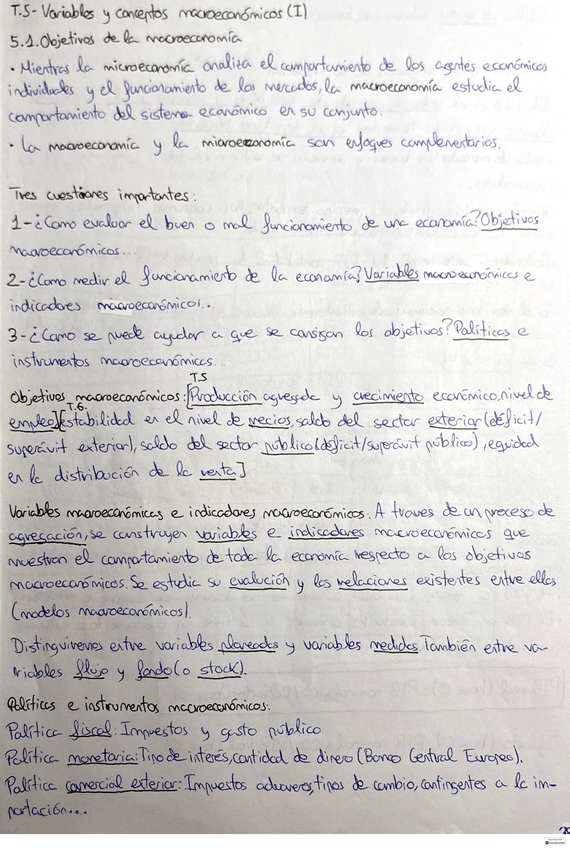 T.5- Variables y conceptos macroeconómicos (I)
5.1. Objetivos de la macroeconomía
· Mientras la microeconomía analiza el comportamiento de los agentes económicos
individuales y el funcionamiento de los mercados, la macroeconomía estudia el
comportamiento del sistema económico en su conjunto.
· La macroeconomía y la microeconomía son enfoques complementarios.
Tres cuestiones importantes:
1-¿Como evaluar el buen o mal funcionamiento de una economía? Objetivos
macroeconómicos...
2-¿Como medir el funcionamiento de la economía? Variables macroeconómicas e
indicadores macroeconómicos...
3-¿Como se puede ayudar a que se consigan los objetivos? Políticas e
instrumentos macroeconómicos...
T.5
Objetivos macroeconómicos: [Producción agregada y crecimiento económico, nivel de
T.6.
empleo] [estabilidad en el nivel de precios, saldo del sector exterior (déficit/
superávit exterior), saldo del sector público (déficit/superávit público), equidad
en la distribución de la renta]
Variables macroeconómicas e indicadores macroeconómicos: A traves de un proceso de
agregación, se construyen variables e indicadores macroeconómicos que
muestran el comportamiento de toda la economía respecto a los objetivos
macroeconómicos. Se estudia su evolución y las relaciones existentes entre ellas
(modelos macroeconómicos).
Distinguiremos entre variables planeadas y variables medidas. También entre va-
riables flujo y fondo (o stock).
Políticas e instrumentos macroeconómicos:
Política fiscal: Impuestos y gasto público
Política monetaria: Tipo de interés, cantidad de dinero (Banco Central Europeo).
Política comercial exterior: Impuestos aduaneros, tipos de cambio, contingentes a la im-
portación...